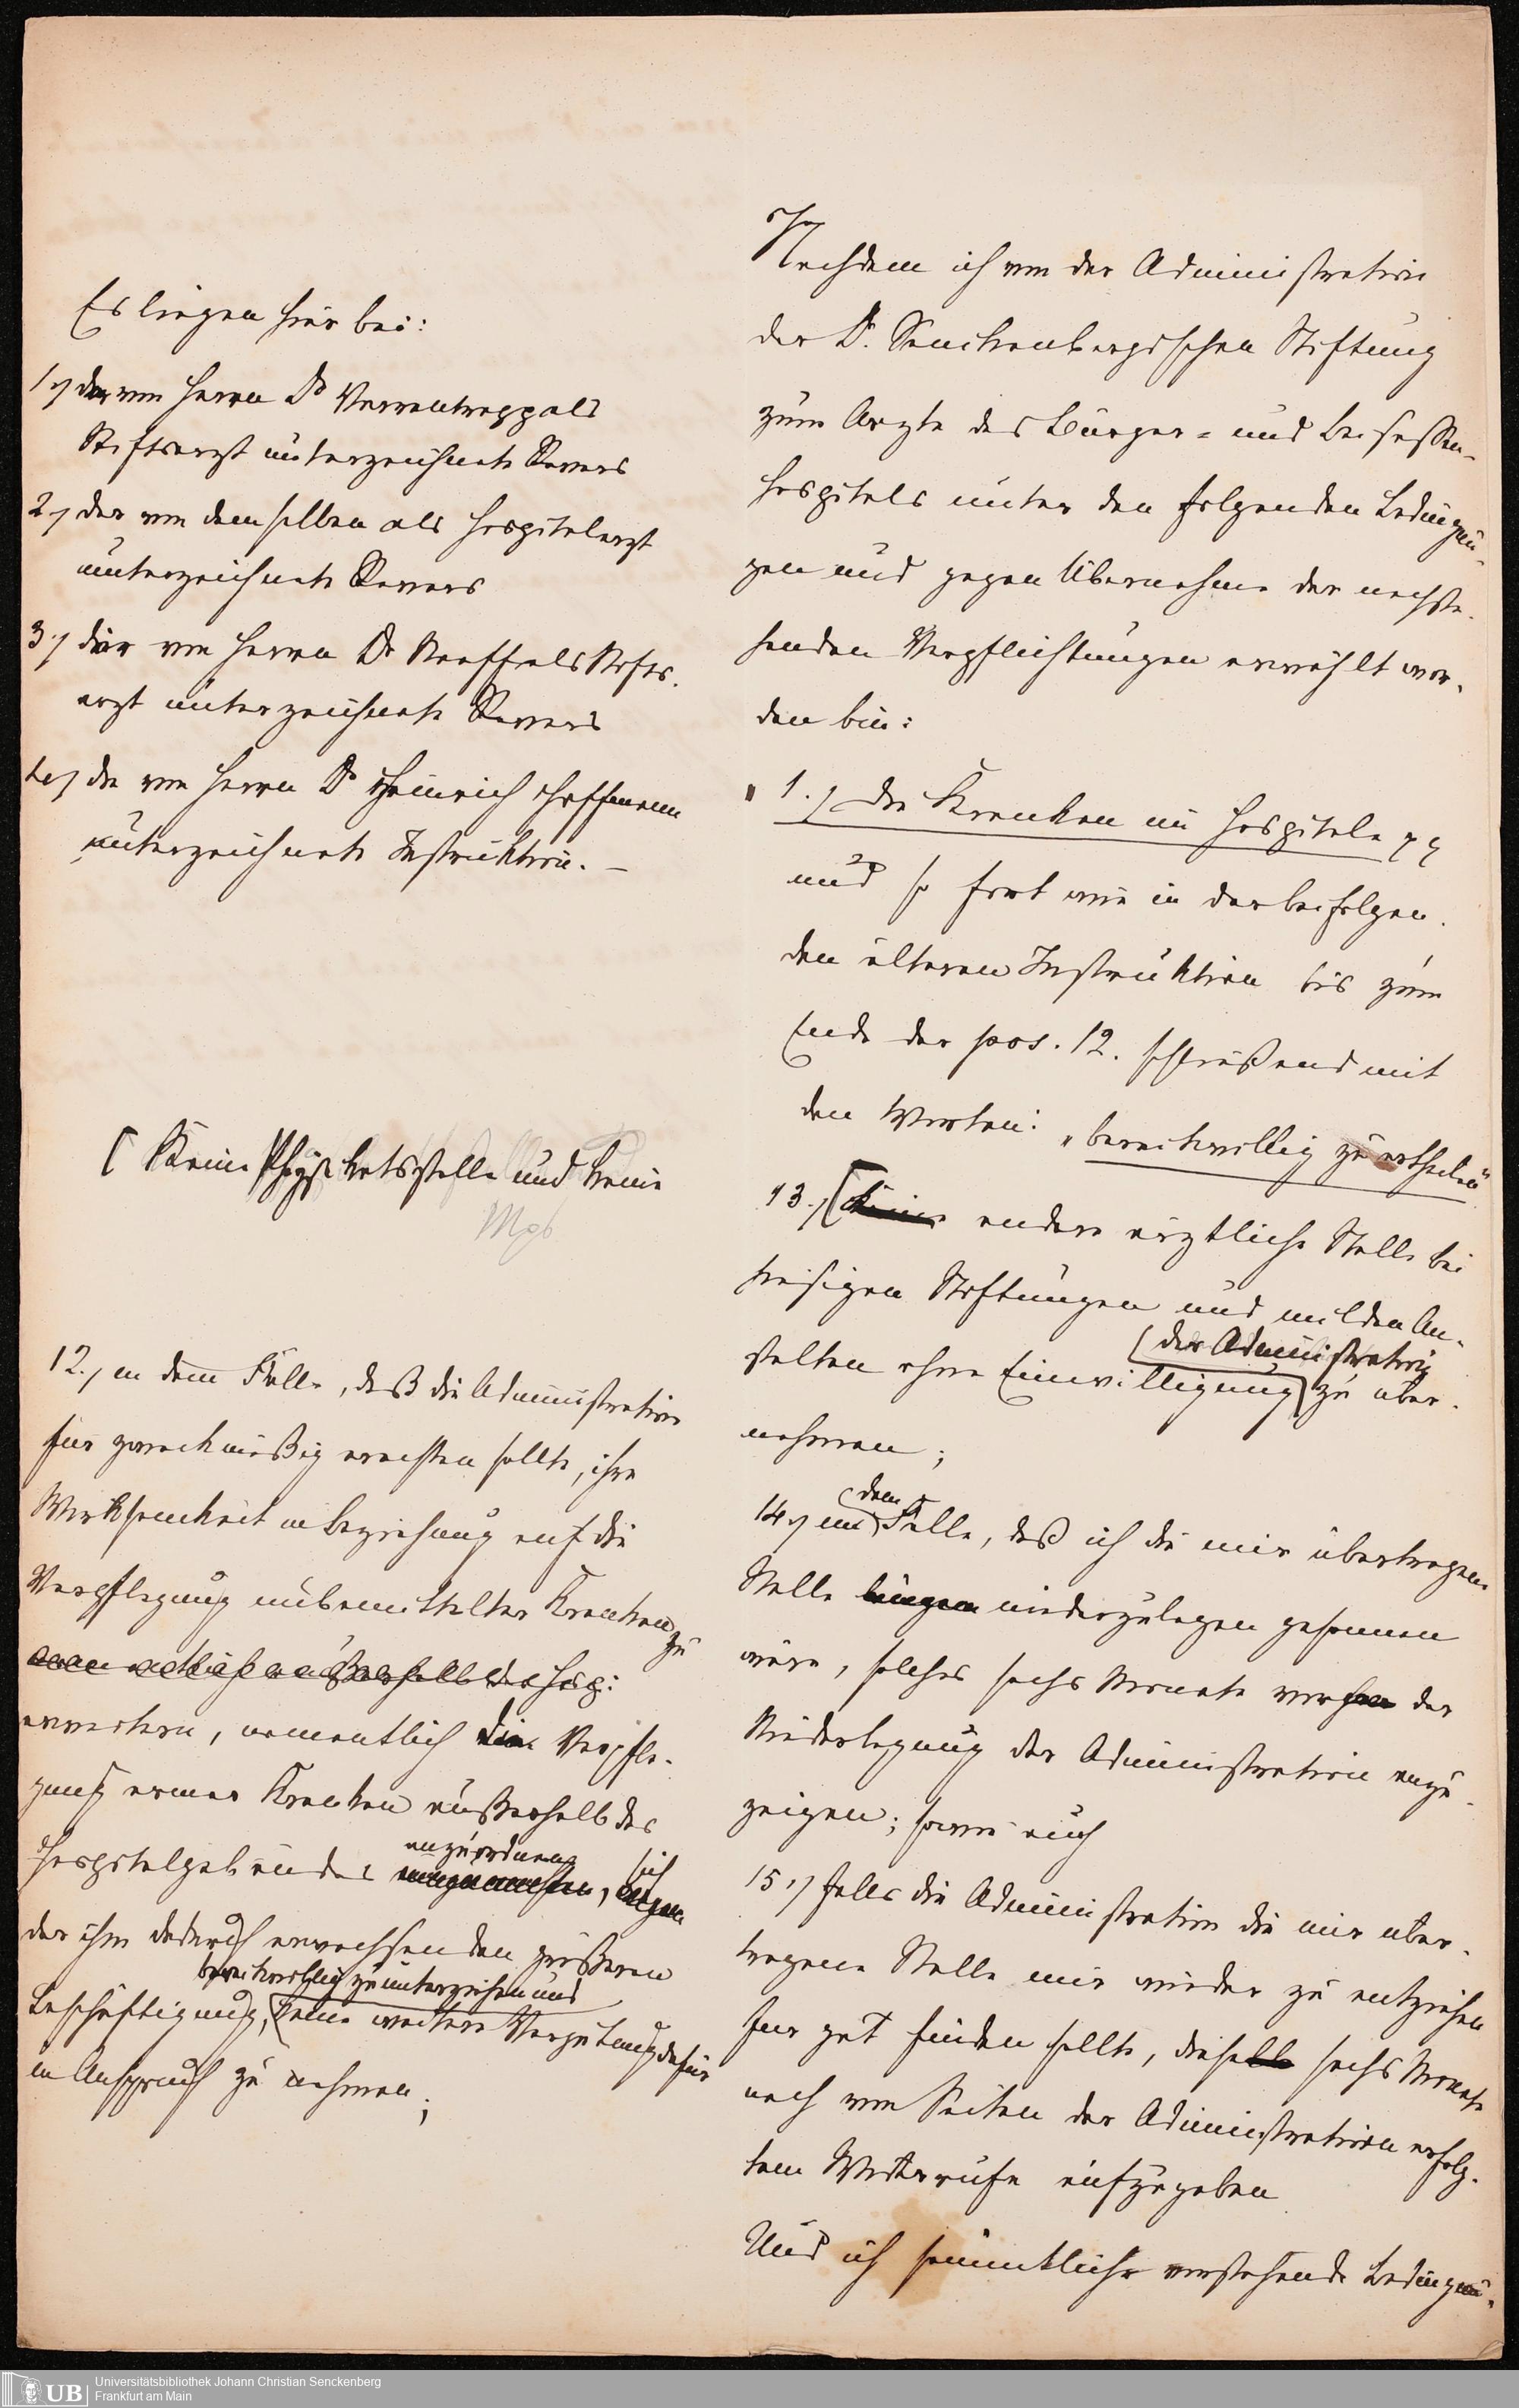 Es liegen hier bei:
1.) der von Herrn Dr Varrentrapp als
Stiftsarzt unterzeichnete Revers
2.) der von demselben als Hospitalarzt
unterzeichnete Revers
3.) der von Herrn Dr Neeff als Stifts-
arzt unterzeichnete Revers
4.) die von Herrn Dr Heinrich Hoffmann
unterzeichnete Instruktion. –
[ Keine Physikatsstelle und keine
12.) in dem Falle, daß die Administration
für zweckmäßig erachten sollte, ihre
Wirksamkeit in Beziehung auf die
Verpflegung unbemittelter Kranken zu
außerhalb des Hosp:
erweitern, namentlich die Verpfle-
gung armer Kranken außerhalb des
Hospitalgebäudes anzuordnen, sich
der ihm dadurch erwachsenden größeren
bereitwillig zu unterziehen und
Beschäftigung, keine weitere Vergütung dafür
in Anspruch zu nehmen;
Nachdem ich von der Administration
der Dr. Senckenbergischen Stiftung
zum Arzte des Bürger- und Beisassen-
hospitals unter den folgenden Bedingun-
gen und gegen Übernahme der nachste-
henden Verpflichtungen erwählt wor-
den bin:
" 1.) Die Kranken im Hospitale pp
und so fort wie in der beifolgen-
den älteren Instruktion bis zum
Ende der pos. 12. schließend mit
den Worten: "bereitwillig zu ertheilen"
13.) [Keine andere ärztliche Stelle bei
hiesigen Stiftungen und milden An-
der Administration
stalten ohne Einwilligung zu über-
nehmen;
dem
14.) in Falle, daß ich die mir übertragene
Stelle niederzulegen gesonnen
wäre, solches sechs Monate vor der
Niederlegung der Administration anzu-
zeigen; sowie auch
15.) falls die Administration die mir über-
tragene Stelle mir wieder zu entziehen
für gut finden sollte, diese sechs Monate
nach von Seiten der Administration erfolg-
tem Widerrufe aufzugeben
Und ich sämmtliche vorstehende Bedingun-
Universitätsbibliothek Johann Christian Senckenberg
Frankfurt am Main
UB